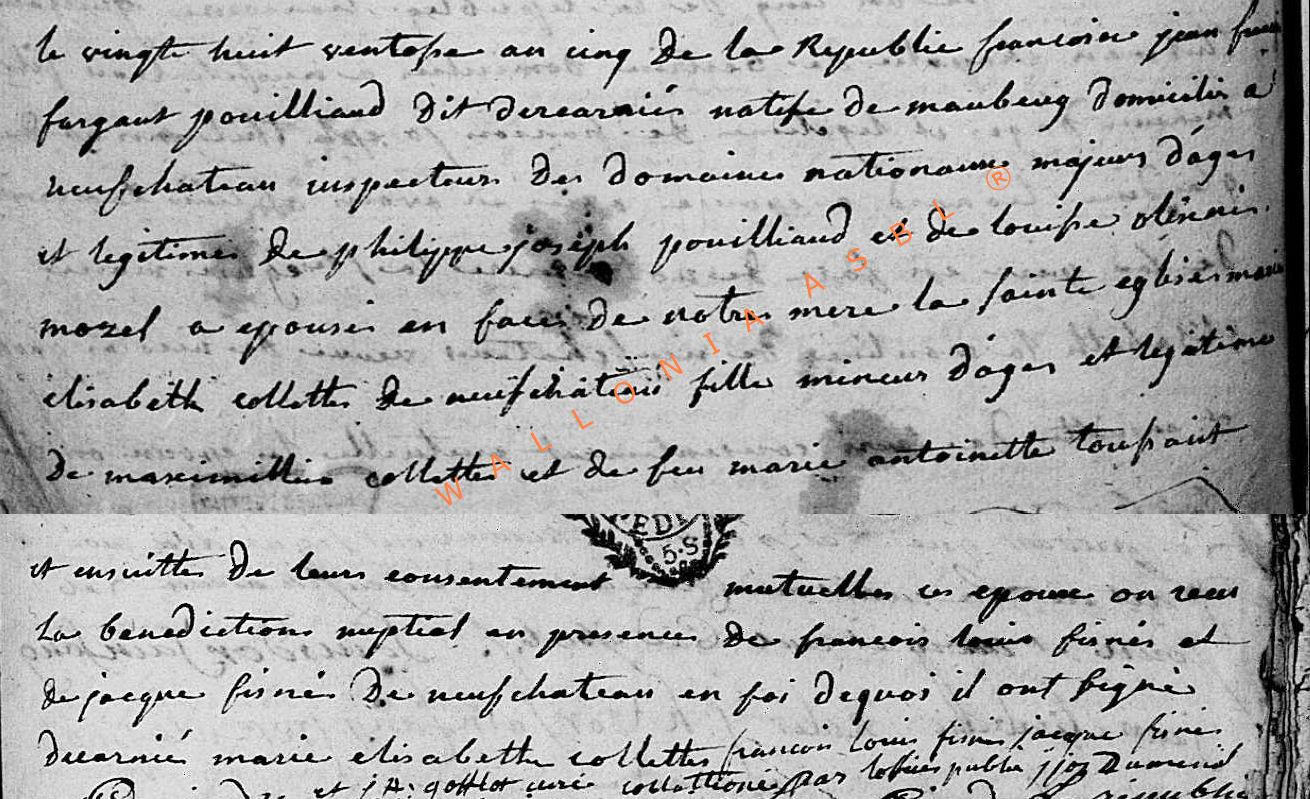 le vingte huit ventose an cinq de la Republie francoise jean
fargaut pouilliaud Dit decarniés natife de maubeug domicilis a
neufchateau inspecteurs Des Domaines nationaux majeurs d'ages
et legitimes de philippe joseph pouilliaud et de louise
mozel a epouse en faces de notre mere la sainte eglise marie
elisabeth collettes de neufchateau fille mineurs d'ages et legitime
De maximillien collettes et de feu marie antoinette toupaint
et ensuittes De leurs consentement mutuelles ces epoux on recu
La benedictions nuptial en presences de francois louis fisnés et
de jacque fisnés De neufchateau en foi dequoi il ont signé
decarnié marie elisabeth collettes francois louis fisnes jacque fisnes
et curé collationé par publie
WALLONIA ASBL ®
5.S